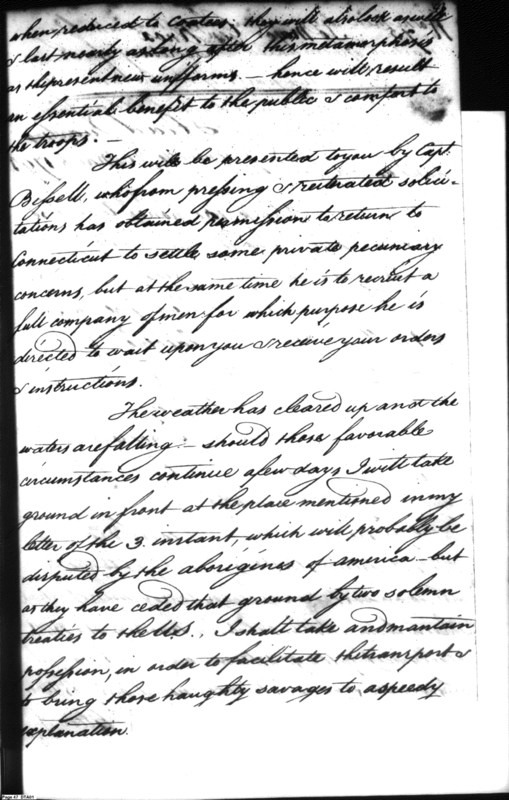 when reduced to Coatees. they will also look as well
& last nearly as long after this metamorphosis
as the present new uniforms. — hence will result
an essential benefit to the public & comfort to
the troops. —
This will be presented to you by Capt.
Bissell, who from pressing & reiterated solici-
tations has obtained permission to return to
Connecticut to settle some private pecuniary
concerns, but at the same time he is to recruit a
full company of men for which purpose he is
directed to wait upon you & receive your orders
& instructions.
The weather has cleared up and the
waters are falling — should those favorable
circumstances continue a few days I will take
ground in front at the place mentioned in my
letter of the 3. instant, which will probably be
disputed by the aborigines of america — but
as they have ceded that ground by two solemn
treaties to the U.S., I shall take and mantain
possession, in order to facilitate the transport &
to bring those haughty savages to a speedy
explanation.
Page 47 DTA01